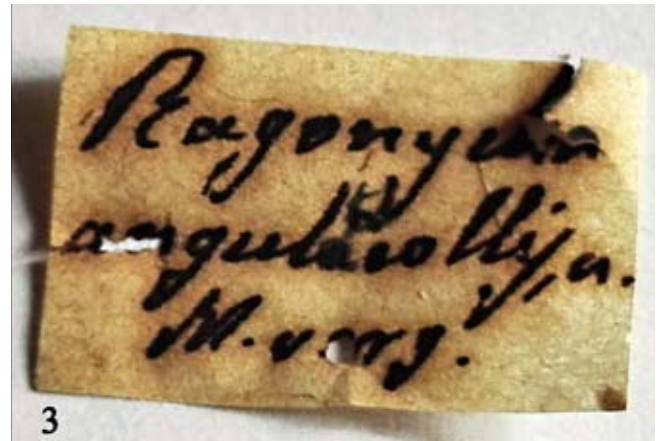 Ragonycha
angulatocollis, n.
M. verg.
3